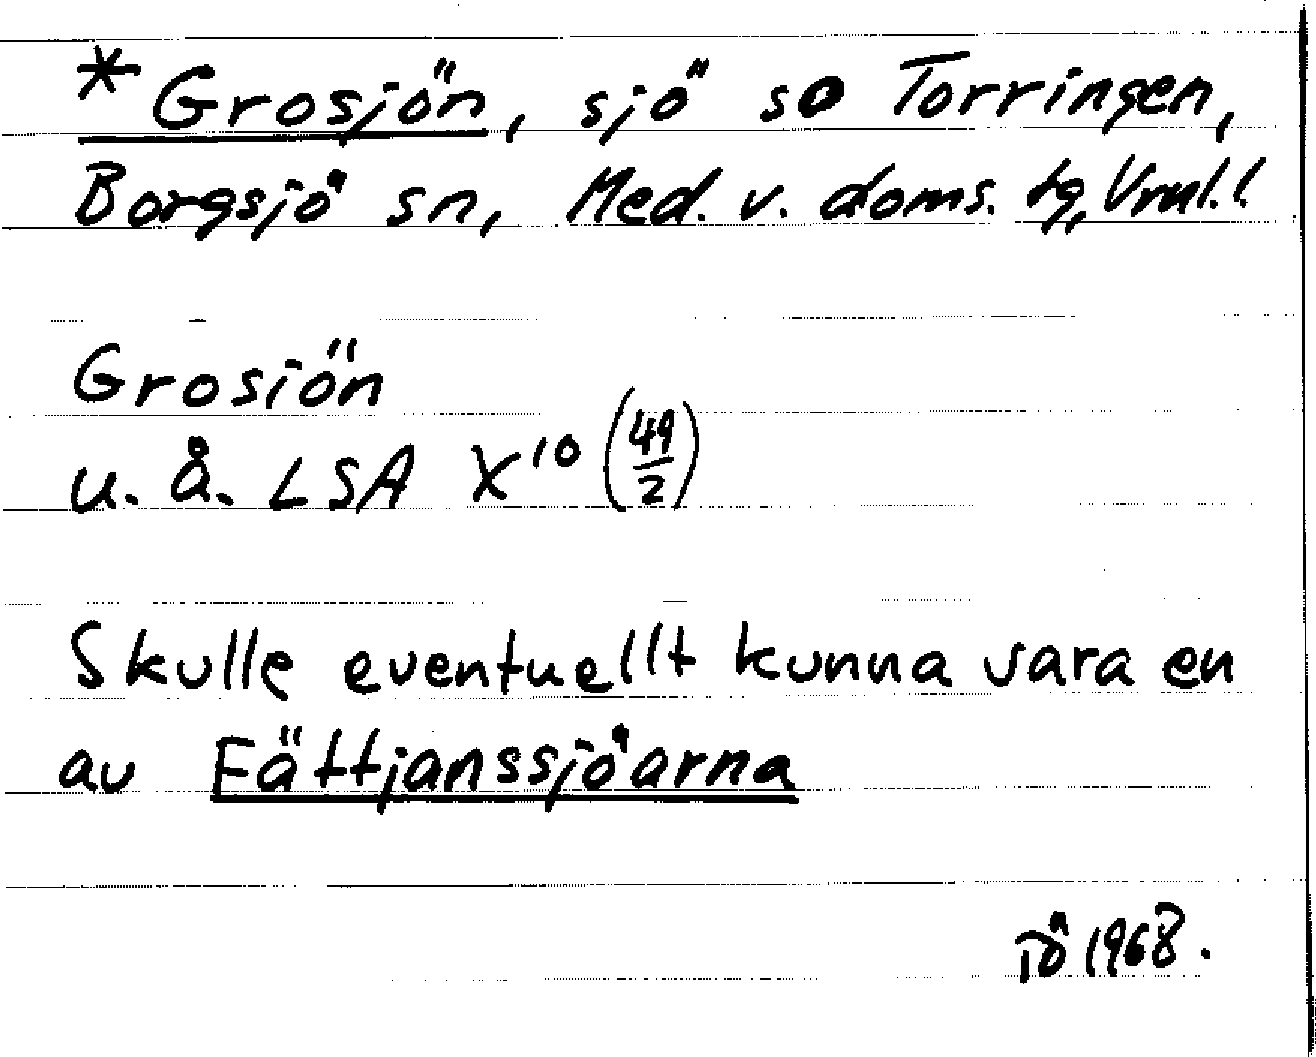 *Grosjön, sjö so Torringen,
Borgsjö sn, Med. v. doms. tg, Vrnl. l.
Grosiön
u. å. LSA X¹⁰ (49/2)
Skulle eventuellt kunna vara en
av Fättjanssjöarna
TÖ 1968.